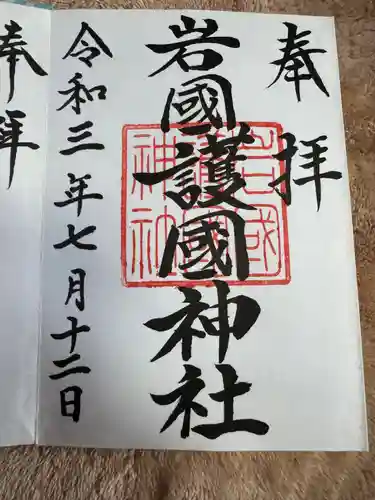 奉拝
岩國護國神社
岩國
護國
神社
令和三年七月十二日
奉拝